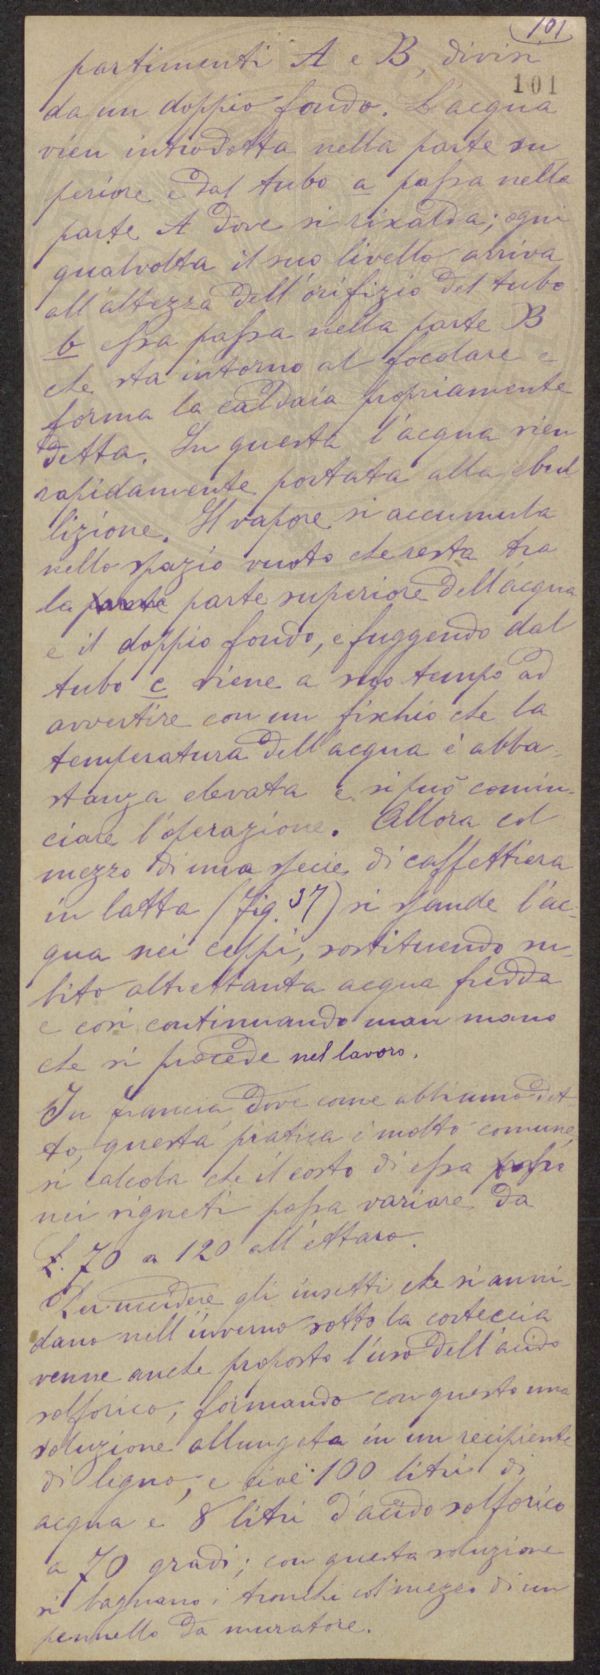 101
101
partimenti A e B, divisi
da un doppio fondo. L'acqua
vien introdotta nella parte su
periore e dal tubo a passa nella
parte A dove si riscalda; ogni
qualvolta il suo livello arriva
all'altezza dell'orifizio del tubo
b essa passa nella parte B
che sta intorno al focolare e
forma la caldaia propriamente
detta. In questa l'acqua vien
rapidamente portata alla ebul
lizione. Il vapore si accumula
nello spazio vuoto che resta tra
la parte superiore dell'acqua
e il doppio fondo, e fuggendo dal
tubo c viene a suo tempo ad
avvertire con un fischio che la
temperatura dell'acqua è abba-
stanza elevata e si può comin-
ciare l'operazione. Allora col
mezzo di una specie di caffettiera
in latta (fig. 37) si spande l'ac-
qua nei ceppi, sostituendo su-
bito altrettanta acqua fredda
e così continuando man mano
che si procede nel lavoro.
In Francia, dove come abbiamo det-
to, questa pratica è molto comune,
si calcola che il costo di essa
nei vigneti possa variare da
L. 70 a 120 all'ettaro.
Per uccidere gli insetti che si anni-
dano nell'inverno sotto la corteccia
venne anche proposto l'uso dell'acido
solforico, formando con questo una
soluzione allungata in un recipiente
di legno, e cioè 100 litri di
acqua e 8 litri d'acido solforico
a 70 gradi; con questa soluzione
si bagnano i tronchi col mezzo di un
pennello da muratore.